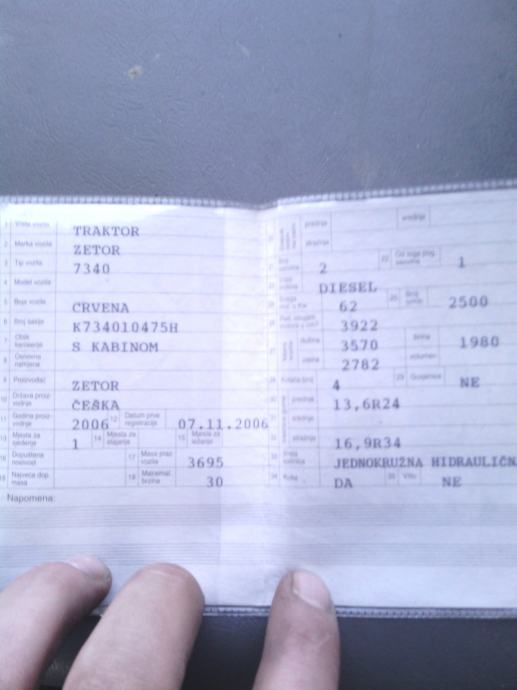 1 Vrsta vozila TRAKTOR
2 Marka vozila ZETOR
3 Tip vozila 7340
4 Model vozila
5 Boja vozila CRVENA
6 Broj šasije K734010475H
7 Oblik karoserije S KABINOM
8 Osnovna namjena
9 Proizvođač ZETOR
10 Država proizvodnje ČEŠKA
11 Godina proizvodnje 2006 12 Datum prve registracije 07.11.2006
13 Mjesta za sjedenje 1 14 Mjesta za stajanje 15 Mjesta za ležanje
16 Dopuštena nosivost 17 Masa praz. vozila 3695
Najveća dop. masa 18 Maksimal. brzina 30
Napomena:
prednja srednja
stražnja
2 1
DIESEL
62 2500
3922
dužina 3570 širina 1980
visina 2782 volumen
4 29 Gusjenice NE
prednje 13,6R24
srednje
stražnje 16,9R34
JEDNOKRUŽNA HIDRAULIČN
Kuka DA Vitlo NE